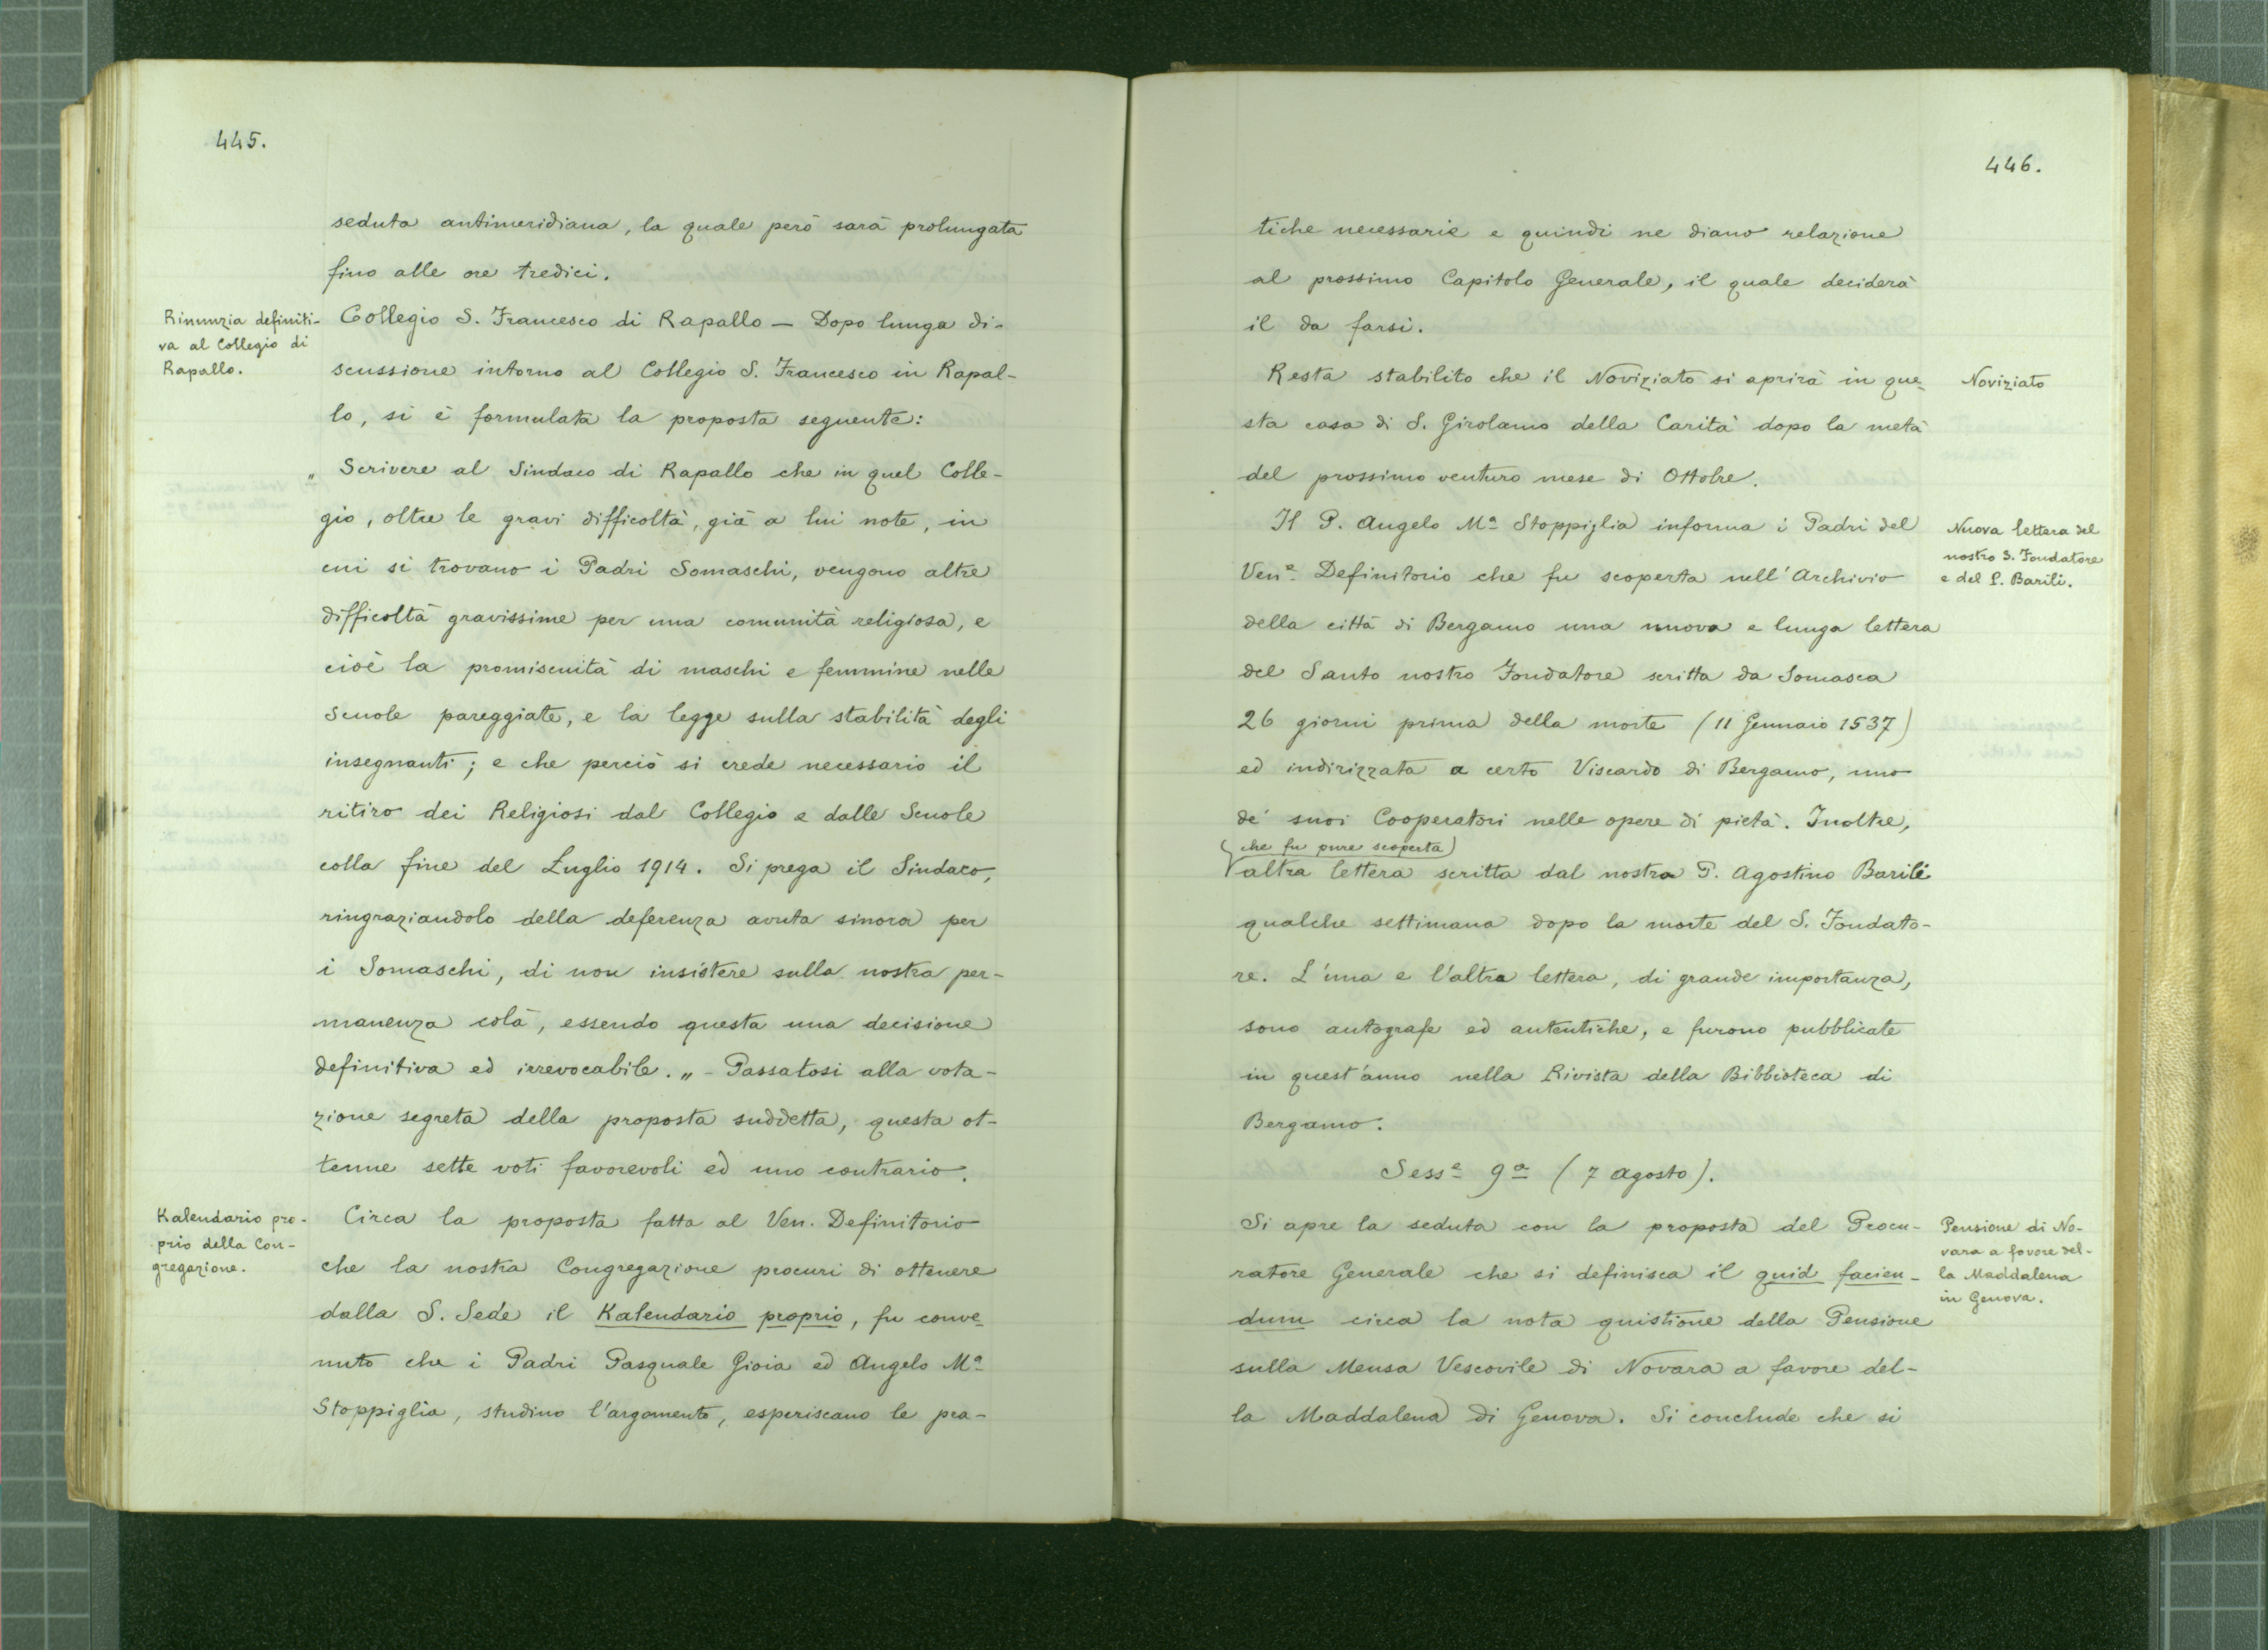 445.
seduta antimeridiana, la quale però sarà prolungata
fino alle ore tredici.
Rinunzia definiti-
va al Collegio di
Rapallo.
Collegio S. Francesco di Rapallo — Dopo lunga di-
scussione intorno al Collegio S. Francesco in Rapal-
lo, si è formulata la proposta seguente:
„ Scrivere al Sindaco di Rapallo che in quel Colle-
gio, oltre le gravi difficoltà, già a lui note, in
cui si trovano i Padri Somaschi, vengono altre
difficoltà gravissime per una comunità religiosa, e
cioè la promiscuità di maschi e femmine nelle
scuole pareggiate, e la legge sulla stabilità degli
insegnanti; e che perciò si crede necessario il
ritiro dei Religiosi dal Collegio e dalle Scuole
colla fine del Luglio 1914. Si prega il Sindaco,
ringraziandolo della deferenza avuta sinora per
i Somaschi, di non insistere sulla nostra per-
manenza colà, essendo questa una decisione
definitiva ed irrevocabile. „ - Passatosi alla vota-
zione segreta della proposta suddetta, questa ot-
tenne sette voti favorevoli ed uno contrario.
Kalendario pro-
prio della Con-
gregazione.
Circa la proposta fatta al Ven. Definitorio
che la nostra Congregazione procuri di ottenere
dalla S. Sede il Kalendario proprio, fu conve-
nuto che i Padri Pasquale Gioia ed Angelo Mª
Stoppiglia, studino l'argomento, esperiscano le pra-
446.
tiche necessarie e quindi ne diano relazione
al prossimo Capitolo Generale, il quale deciderà
il da farsi.
Resta stabilito che il Noviziato si aprirà in que-
sta casa di S. Girolamo della Carità dopo la metà
del prossimo venturo mese di Ottobre.
Noviziato
Il P. Angelo Mª Stoppiglia informa i Padri del
Venᵉ Definitorio che fu scoperta nell'Archivio
della città di Bergamo una nuova e lunga lettera
del Santo nostro Fondatore scritta da Somasca
26 giorni prima della morte (11 Gennaio 1537)
ed indirizzata a certo Viscardo di Bergamo, uno
de' suoi Cooperatori nelle opere di pietà. Inoltre,
(che fu pure scoperta)
altra lettera scritta dal nostro P. Agostino Barili
qualche settimana dopo la morte del S. Fondato-
re. L'una e l'altra lettera, di grande importanza,
sono autografe ed autentiche, e furono pubblicate
in quest'anno nella Rivista della Bibbioteca di
Bergamo.
Nuova lettera del
nostro S. Fondatore
e del P. Barili.
Sessᵉ 9ª (7 Agosto).
Si apre la seduta con la proposta del Procu-
ratore Generale che si definisca il quid facien-
dum circa la nota quistione della Pensione
sulla Mensa Vescovile di Novara a favore del-
la Maddalena di Genova. Si conclude che si
Pensione di No-
vara a favore del-
la Maddalena
in Genova.